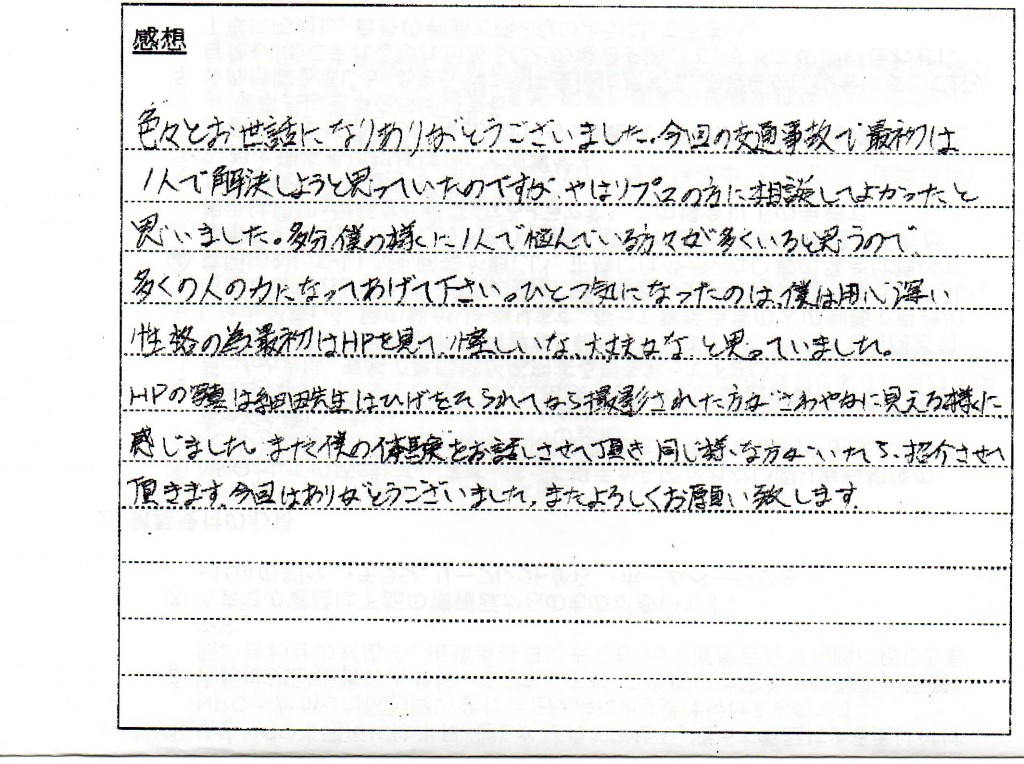 感想
色々とお世話になりありがとうございました。今回の交通事故で最初は
1人で解決しようと思っていたのですが、やはりプロの方に相談してよかったと
思いました。多分、僕の様に1人で悩んでいる方々が多くいると思うので、
多くの人の力になってあげて下さい。ひとつ気になったのは、僕は用心深い
性格の為最初はHPを見て、怪しいな、大丈夫かな、と思っていました。
HPの写真は細田先生はひげをそられてから撮影された方がさわやかに見える様に
感じました。また僕の体験をお話しさせて頂き、同じ様な方がいたら、紹介させて
頂きます。今回はありがとうございました。またよろしくお願い致します。